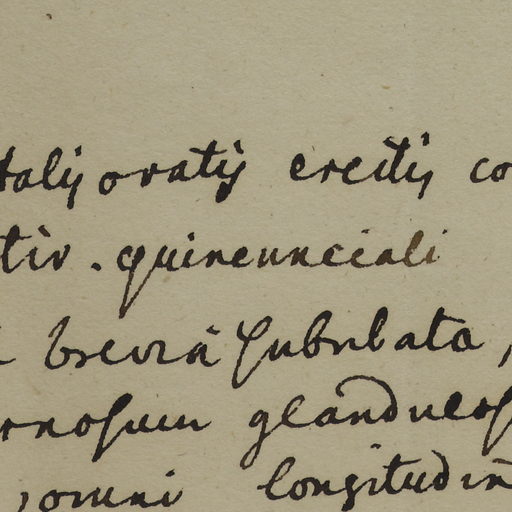 talis ovatis erectis co
tiv. quincunciali
brevia subulata,
rnosum glandulos
omni longitudin